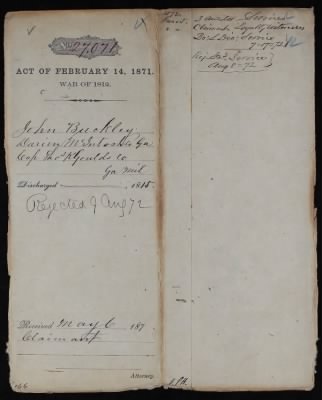 No. 27,071
ACT OF FEBRUARY 14, 1871.
WAR OF 1812.
John Buckley
Darien McIntosh Co Ga
Cap Thos K Goulds Co
Ga Mil
Discharged 1815.
Rejected 9 Aug 72
Received May 6 187
Claimant
Attorney.
Service
Claimant Loyalty, witnesses
Service
7-7-72
Rej. Service
Aug 8-72